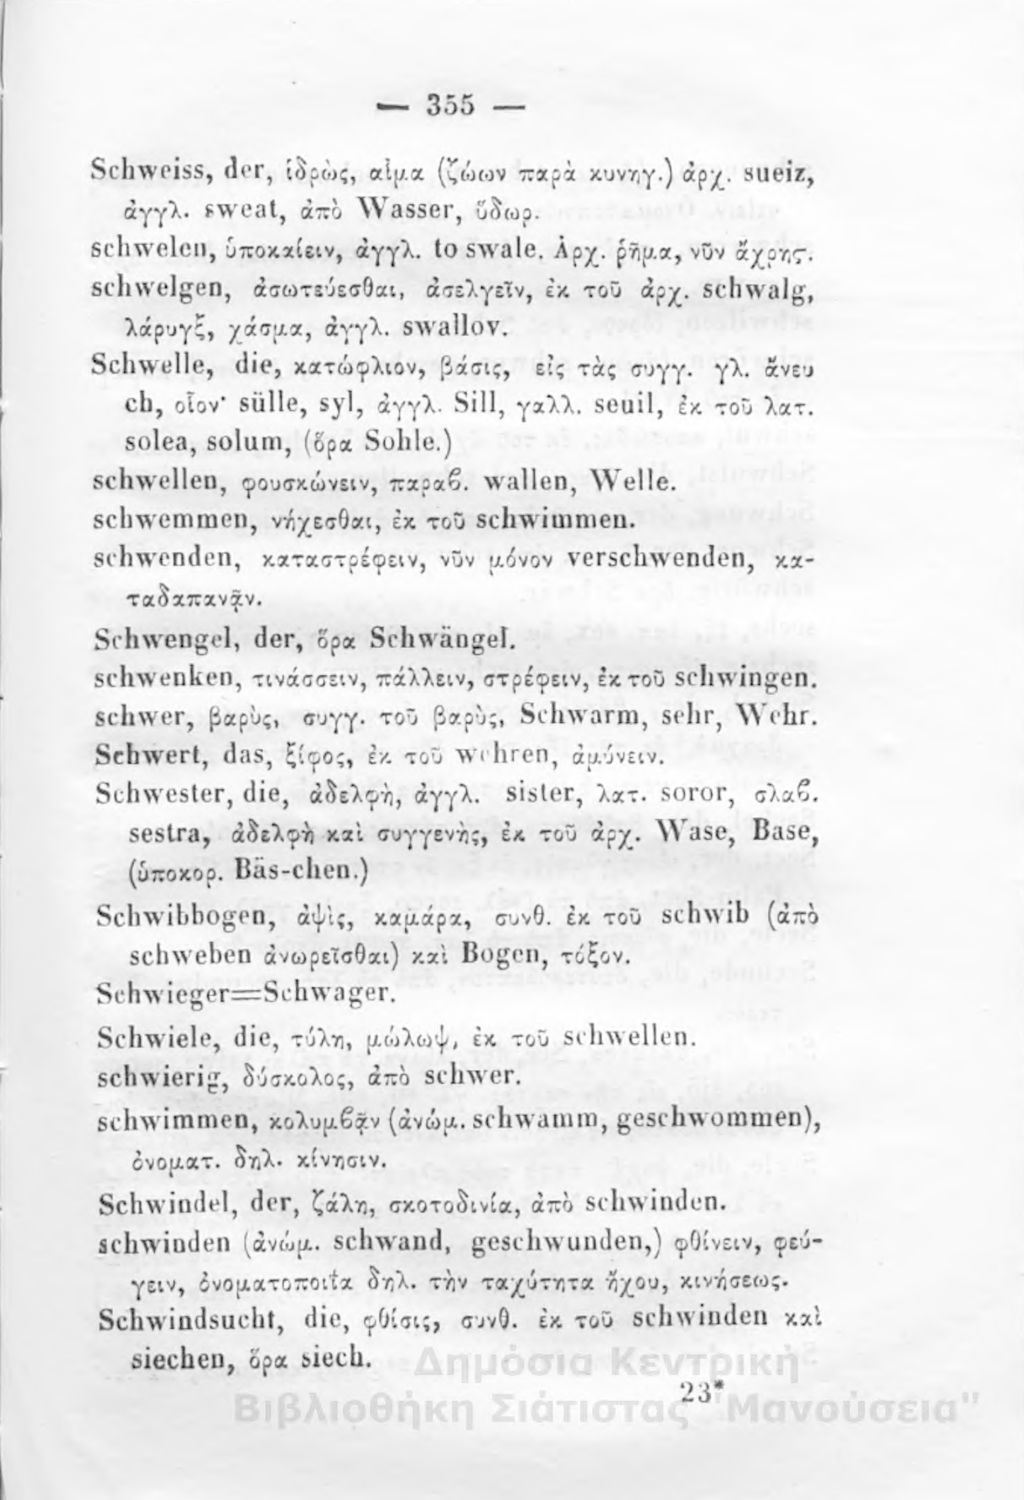 — 355 —
Schweiss, der, ἱδρὼς, αἷμα (ζώων παρὰ κυνηγ.) ἀρχ. sueiz,
ἀγγλ. sweat, ἀπὸ Wasser, ὕδωρ.
schwelen, ὑποκαίειν, ἀγγλ. to swale. Ἀρχ. ῥῆμα, νῦν ἄχρησ.
schwelgen, ἀσωτεύεσθαι, ἀσελγεῖν, ἐκ τοῦ ἀρχ. schwalg,
λάρυγξ, χάσμα, ἀγγλ. swallov.
Schwelle, die, κατώφλιον, βάσις, εἰς τὰς συγγ. γλ. ἄνευ
ch, οἷον· sülle, syl, ἀγγλ. Sill, γαλλ. seuil, ἐκ τοῦ λατ.
solea, solum, (ὅρα Sohle.)
schwellen, φουσκώνειν, παραβ. wallen, Welle.
schwemmen, νήχεσθαι, ἐκ τοῦ schwimmen.
schwenden, καταστρέφειν, νῦν μόνον verschwenden, κα-
ταδαπανᾷν.
Schwengel, der, ὅρα Schwängel.
schwenken, τινάσσειν, πάλλειν, στρέφειν, ἐκ τοῦ schwingen.
schwer, βαρὺς, συγγ. τοῦ βαρὺς, Schwarm, sehr, Wehr.
Schwert, das, ξίφος, ἐκ τοῦ wehren, ἀμύνειν.
Schwester, die, ἀδελφὴ, ἀγγλ. sister, λατ. soror, σλαβ.
sestra, ἀδελφὴ καὶ συγγενὴς, ἐκ τοῦ ἀρχ. Wase, Base,
(ὑποκορ. Bäs-chen.)
Schwibbogen, ἀψὶς, καμάρα, συνθ. ἐκ τοῦ schwib (ἀπὸ
schweben ἀνωρεῖσθαι) καὶ Bogen, τόξον.
Schwieger=Schwager.
Schwiele, die, τύλη, μώλωψ, ἐκ τοῦ schwellen.
schwierig, δύσκολος, ἀπὸ schwer.
schwimmen, κολυμβᾷν (ἀνώμ. schwamm, geschwommen),
ὀνοματ. δηλ. κίνησιν.
Schwindel, der, ζάλη, σκοτοδινία, ἀπὸ schwinden.
schwinden (ἀνώμ. schwand, geschwunden,) φθίνειν, φεύ-
γειν, ὀνοματοποιΐα δηλ. τὴν ταχύτητα ἤχου, κινήσεως.
Schwindsucht, die, φθίσις, συνθ. ἐκ τοῦ schwinden καὶ
siechen, ὅρα siech.
23*
Δημόσια Κεντρική
Βιβλιοθήκη Σιάτιστας "Μανούσεια"